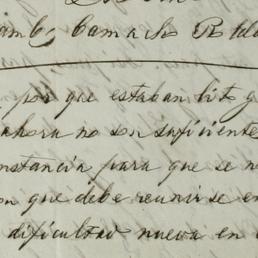 Camacho Rold
por que estaban
ahora no son suficiente
nstancia para que se n
on que debe reunirse en
dificultad nueva en